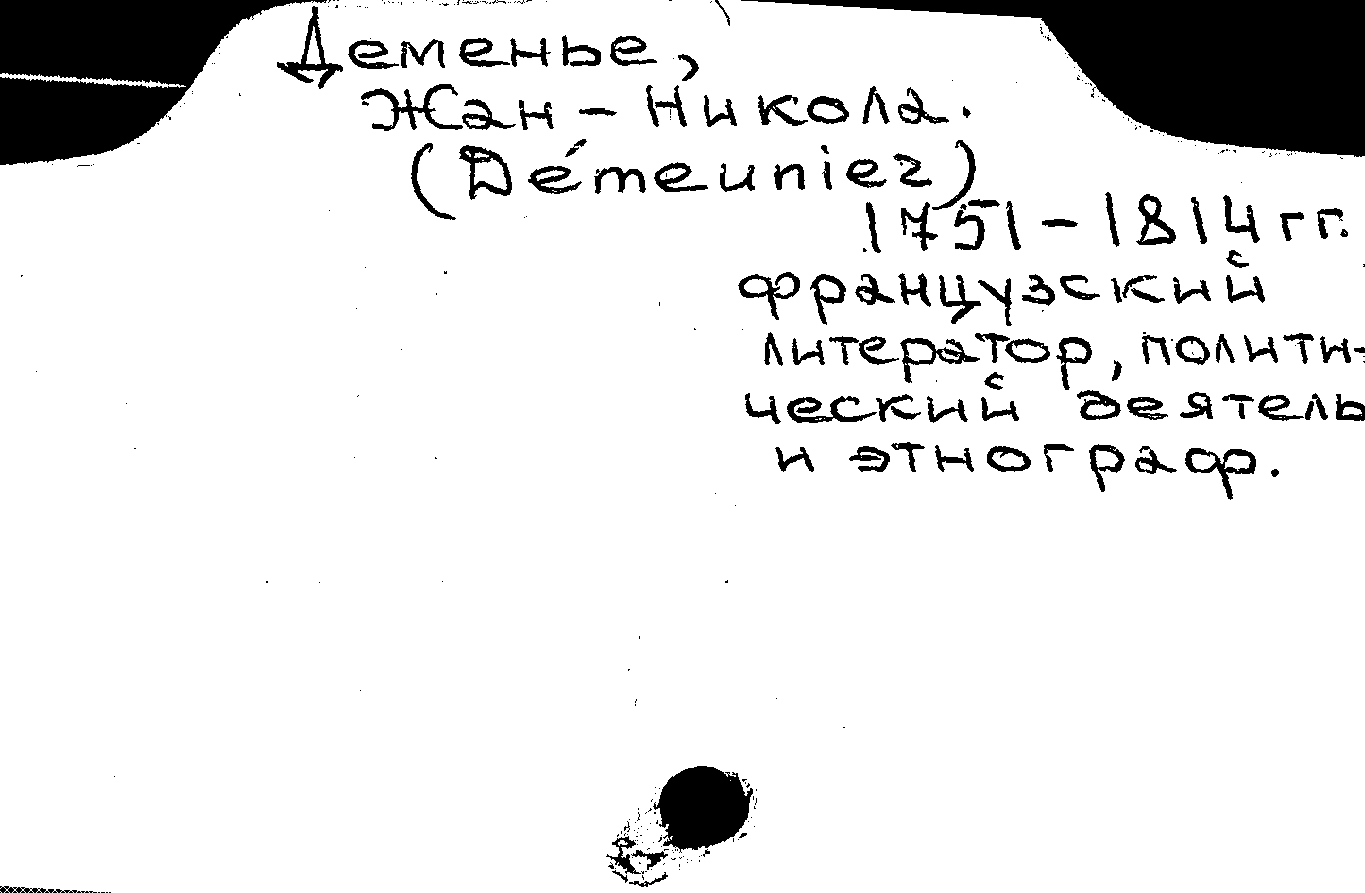 Деменье,
Жан-Никола.
(Démeunier)
1751-1814 гг.
французский
литератор, полити-
ческий деятель
и этнограф.